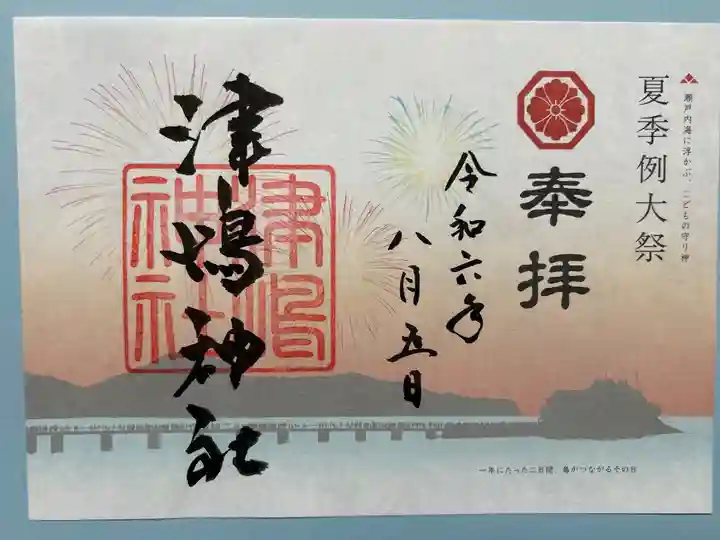 瀬戸内海に浮かぶ、こどもの守り神
夏季例大祭
奉拝
令和六年
八月五日
津嶋神社
津嶋
神社
一年にたった二日間、島がつながるその日